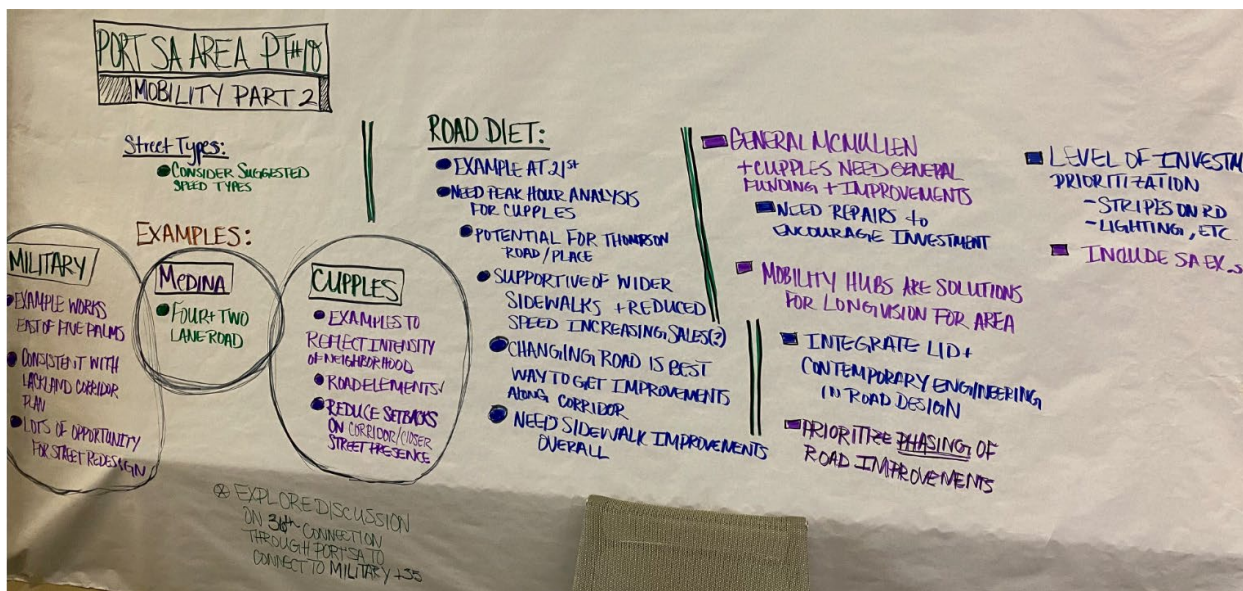 PORT SA AREA PT#10
MOBILITY PART 2
Street Types:
CONSIDER SUGGESTED
SPEED TYPES
EXAMPLES:
MILITARY
EXAMPLE WORKS
EAST OF FIVE PALMS
CONSISTENT WITH
LACKLAND CORRIDOR
PLAN
LOTS OF OPPORTUNITY
FOR STREET REDESIGN
MEDINA
FOUR + TWO
LANE ROAD
CUPPLES
EXAMPLES TO
REFLECT INTENSITY
OF NEIGHBORHOOD
ROAD ELEMENTS
REDUCE SETBACKS
ON CORRIDOR/CLOSER
STREET PRESENCE
* EXPLORE DISCUSSION
ON 36th CONNECTION
THROUGH PORT SA TO
CONNECT TO MILITARY +
ROAD DIET:
EXAMPLE AT 21st
NEED PEAK HOUR ANALYSIS
FOR CUPPLES
POTENTIAL FOR THOMPSON
ROAD/PLACE
SUPPORTIVE OF WIDER
SIDEWALKS + REDUCED
SPEED INCREASING SALES(?)
CHANGING ROAD IS BEST
WAY TO GET IMPROVEMENTS
ALONG CORRIDOR
NEED SIDEWALK IMPROVEMENTS
OVERALL
GENERAL MCMULLEN
+ CUPPLES NEED GENERAL
FUNDING + IMPROVEMENTS
NEED REPAIRS to
ENCOURAGE INVESTMENT
MOBILITY HUBS ARE SOLUTIONS
FOR LONG VISION FOR AREA
INTEGRATE LID +
CONTEMPORARY ENGINEERING
IN ROAD DESIGN
PRIORITIZE PHASING OF
ROAD IMPROVEMENTS
LEVEL OF INVESTM
PRIORITIZATION
- STRIPES ON RD
- LIGHTING, ETC
INCLUDE SA EX.